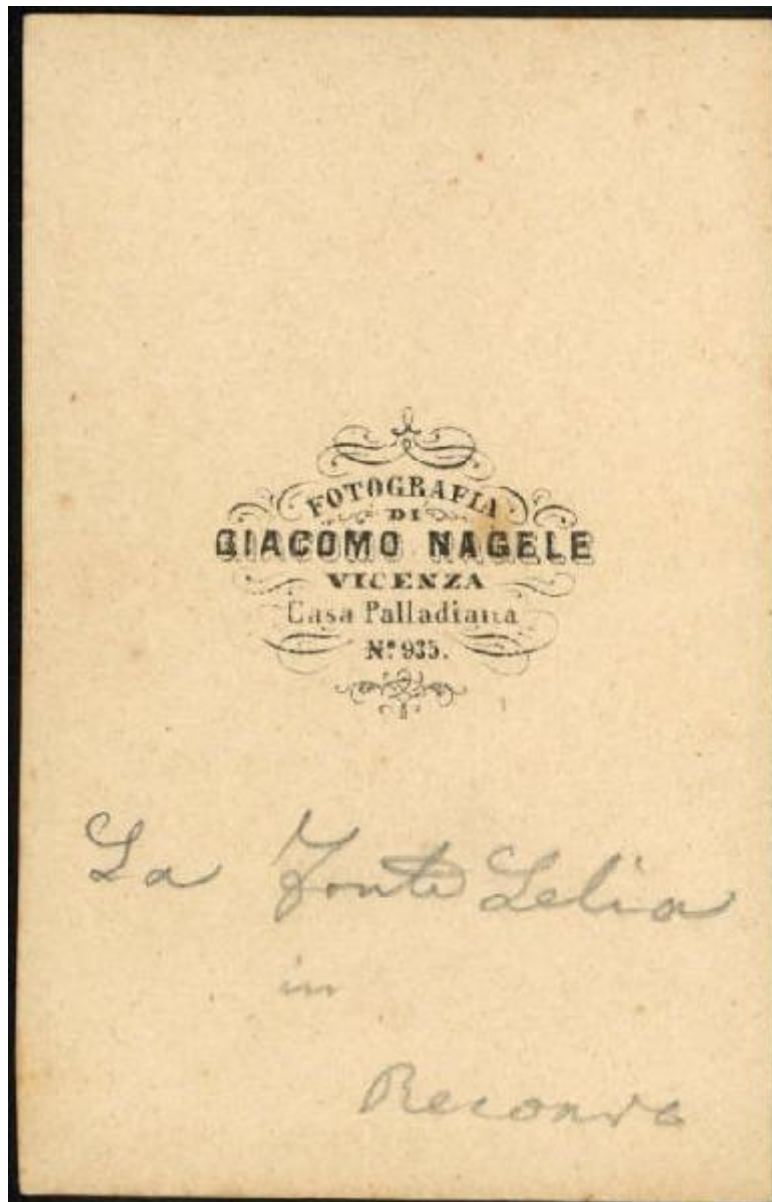 FOTOGRAFIA
DI
GIACOMO NAGELE
VICENZA
Casa Palladiana
Nº 935.
La Fonte Lelia
in
Recoaro